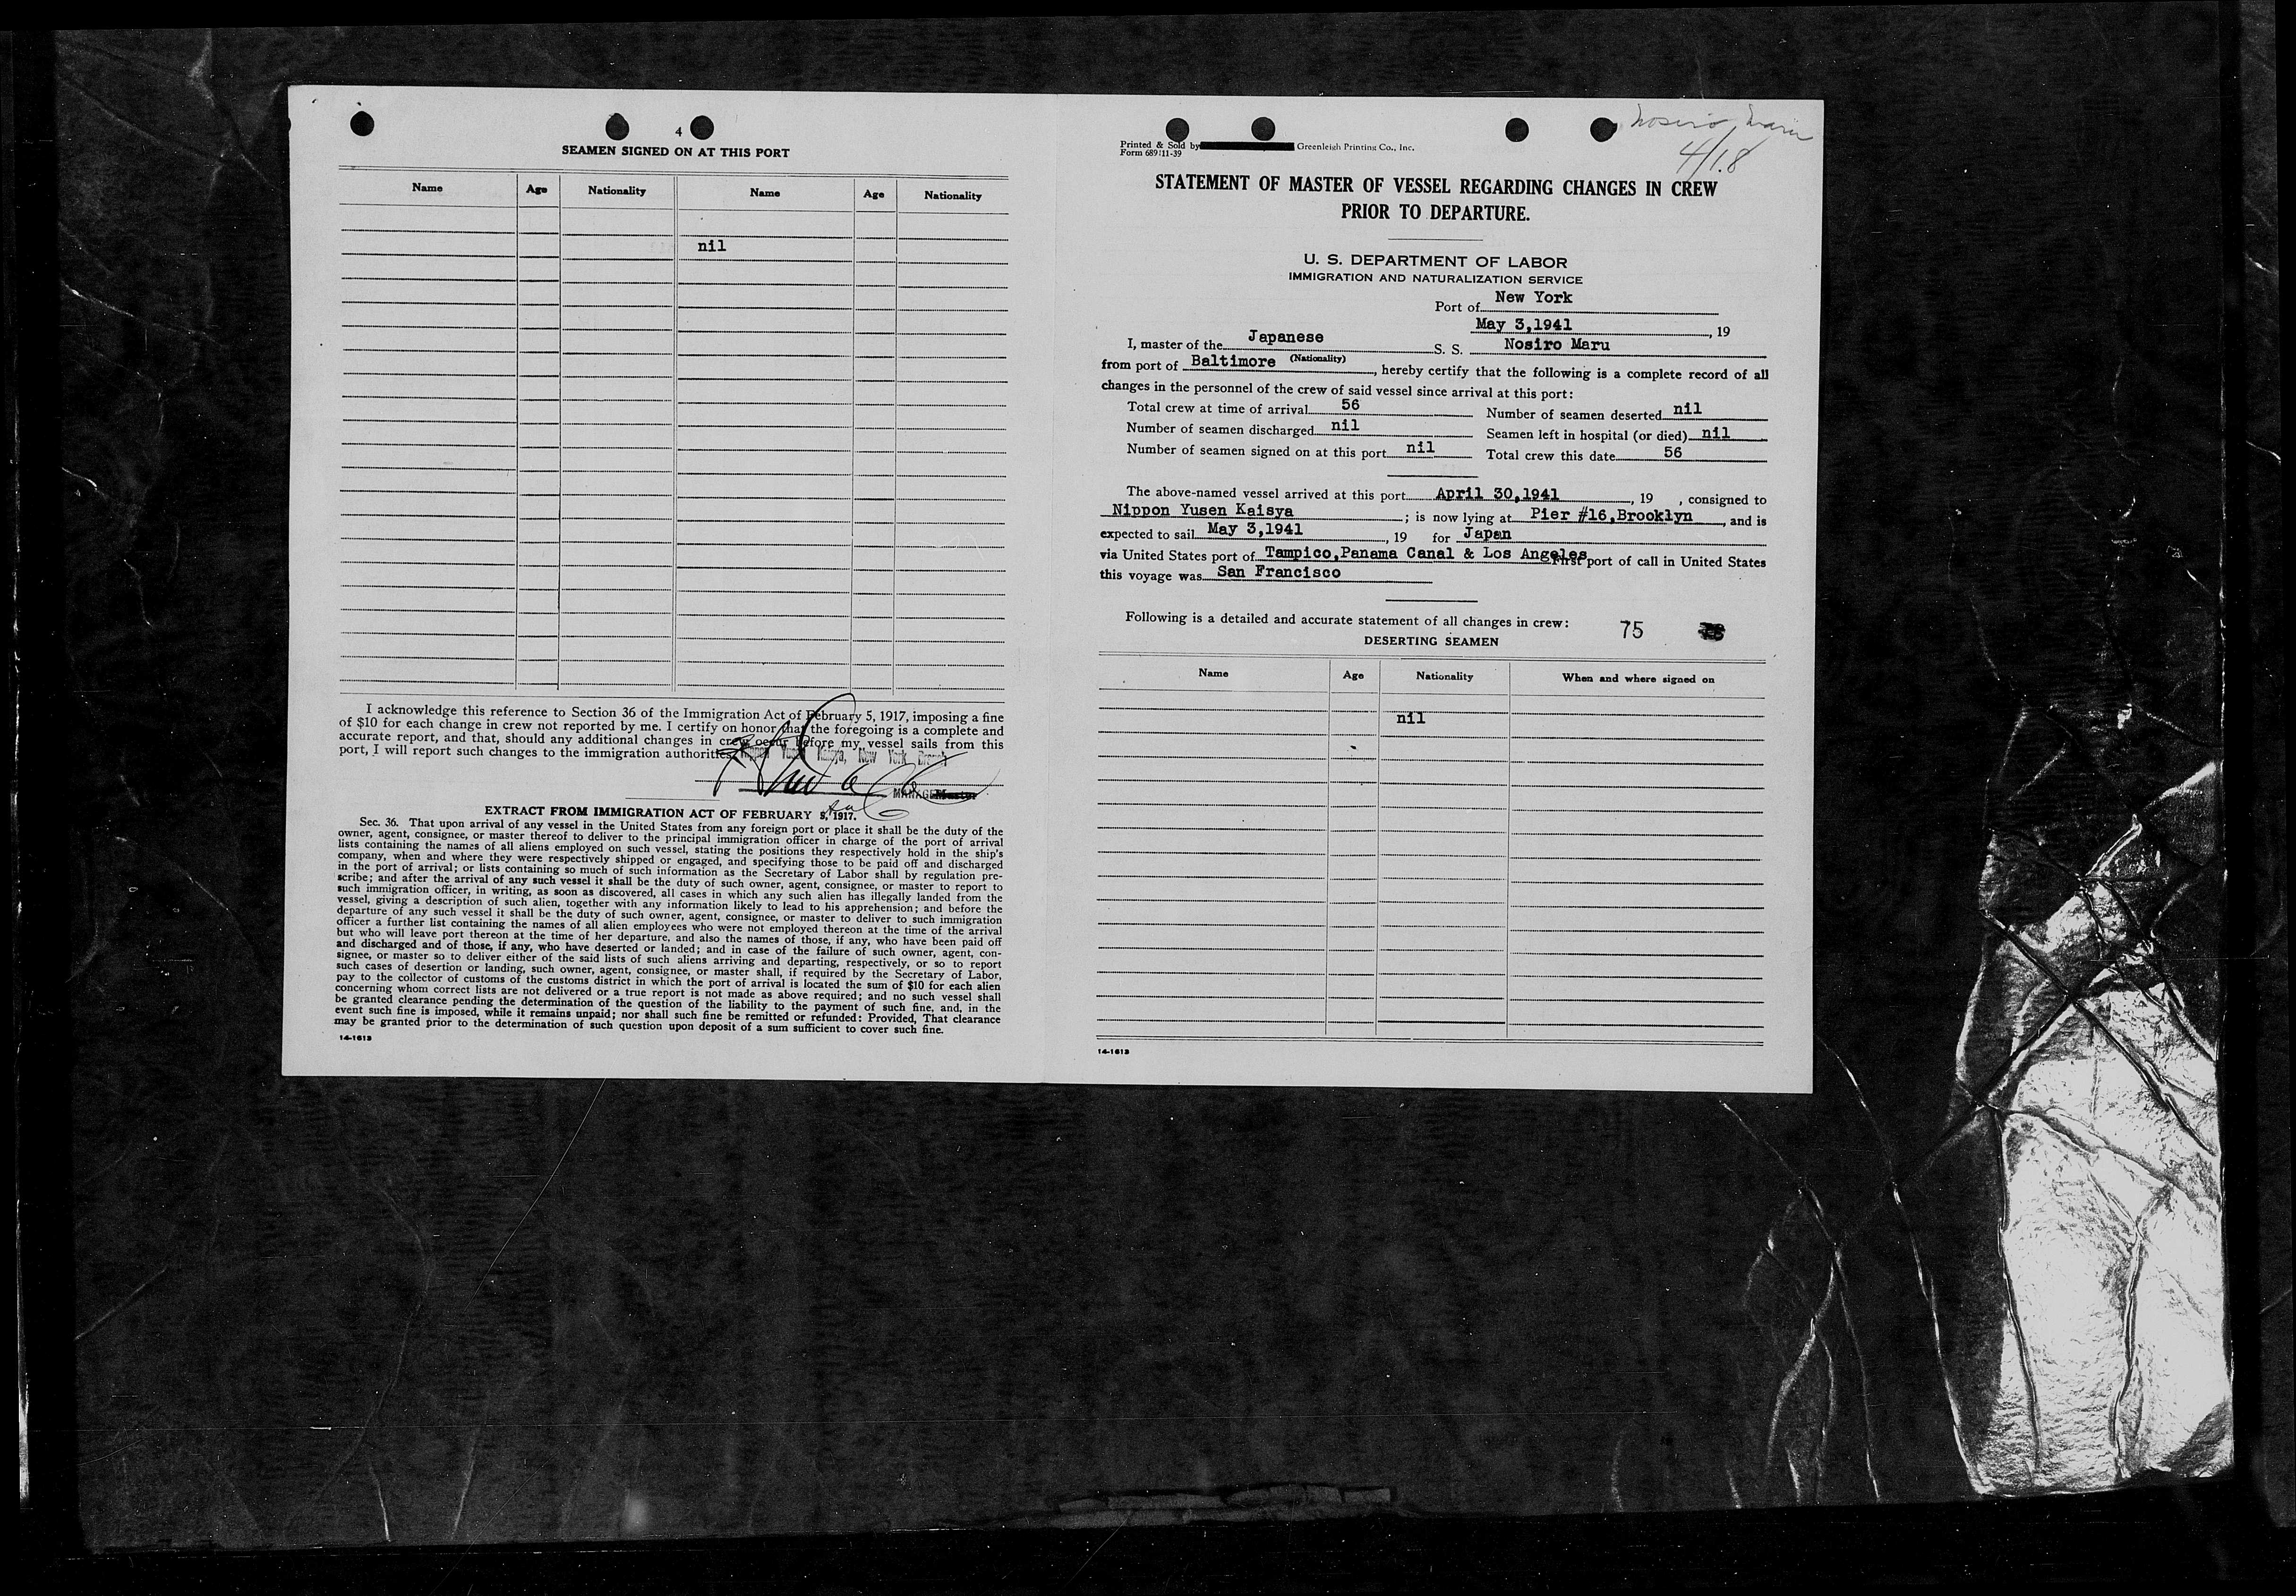 4
SEAMEN SIGNED ON AT THIS PORT
Name Age Nationality Name Age Nationality
nil
I acknowledge this reference to Section 36 of the Immigration Act of February 5, 1917, imposing a fine
of $10 for each change in crew not reported by me. I certify on honor that the foregoing is a complete and
accurate report, and that, should any additional changes in crew occur before my vessel sails from this
port, I will report such changes to the immigration authorities.
Nippon Yusen Kaisya, New York Branch
Master
EXTRACT FROM IMMIGRATION ACT OF FEBRUARY 5, 1917.
Sec. 36. That upon arrival of any vessel in the United States from any foreign port or place it shall be the duty of the
owner, agent, consignee, or master thereof to deliver to the principal immigration officer in charge of the port of arrival
lists containing the names of all aliens employed on such vessel, stating the positions they respectively hold in the ship's
company, when and where they were respectively shipped or engaged, and specifying those to be paid off and discharged
in the port of arrival; or lists containing so much of such information as the Secretary of Labor shall by regulation pre-
scribe; and after the arrival of any such vessel it shall be the duty of such owner, agent, consignee, or master to report to
such immigration officer, in writing, as soon as discovered, all cases in which any such alien has illegally landed from the
vessel, giving a description of such alien, together with any information likely to lead to his apprehension; and before the
departure of any such vessel it shall be the duty of such owner, agent, consignee, or master to deliver to such immigration
officer a further list containing the names of all alien employees who were not employed thereon at the time of the arrival
but who will leave port thereon at the time of her departure, and also the names of those, if any, who have been paid off
and discharged and of those, if any, who have deserted or landed; and in case of the failure of such owner, agent, con-
signee, or master so to deliver either of the said lists of such aliens arriving and departing, respectively, or so to report
such cases of desertion or landing, such owner, agent, consignee, or master shall, if required by the Secretary of Labor,
pay to the collector of customs of the customs district in which the port of arrival is located the sum of $10 for each alien
concerning whom correct lists are not delivered or a true report is not made as above required; and no such vessel shall
be granted clearance pending the determination of the question of the liability to the payment of such fine, and, in the
event such fine is imposed, while it remains unpaid; nor shall such fine be remitted or refunded: Provided, That clearance
may be granted prior to the determination of such question upon deposit of a sum sufficient to cover such fine.
14-1613
Nosiro Maru
4/18
Printed & Sold by Greenleigh Printing Co., Inc.
Form 689 11-39
STATEMENT OF MASTER OF VESSEL REGARDING CHANGES IN CREW
PRIOR TO DEPARTURE.
U. S. DEPARTMENT OF LABOR
IMMIGRATION AND NATURALIZATION SERVICE
Port of New York
May 3,1941, 19
I, master of the Japanese S. S. Nosiro Maru
(Nationality)
from port of Baltimore, hereby certify that the following is a complete record of all
changes in the personnel of the crew of said vessel since arrival at this port:
Total crew at time of arrival 56 Number of seamen deserted nil
Number of seamen discharged nil Seamen left in hospital (or died) nil
Number of seamen signed on at this port nil Total crew this date 56
The above-named vessel arrived at this port April 30,1941, 19 , consigned to
Nippon Yusen Kaisya; is now lying at Pier #16,Brooklyn, and is
expected to sail May 3,1941, 19 for Japan
via United States port of Tampico,Panama Canal & Los Angeles First port of call in United States
this voyage was San Francisco
Following is a detailed and accurate statement of all changes in crew: 75
DESERTING SEAMEN
Name Age Nationality When and where signed on
nil
14-1613